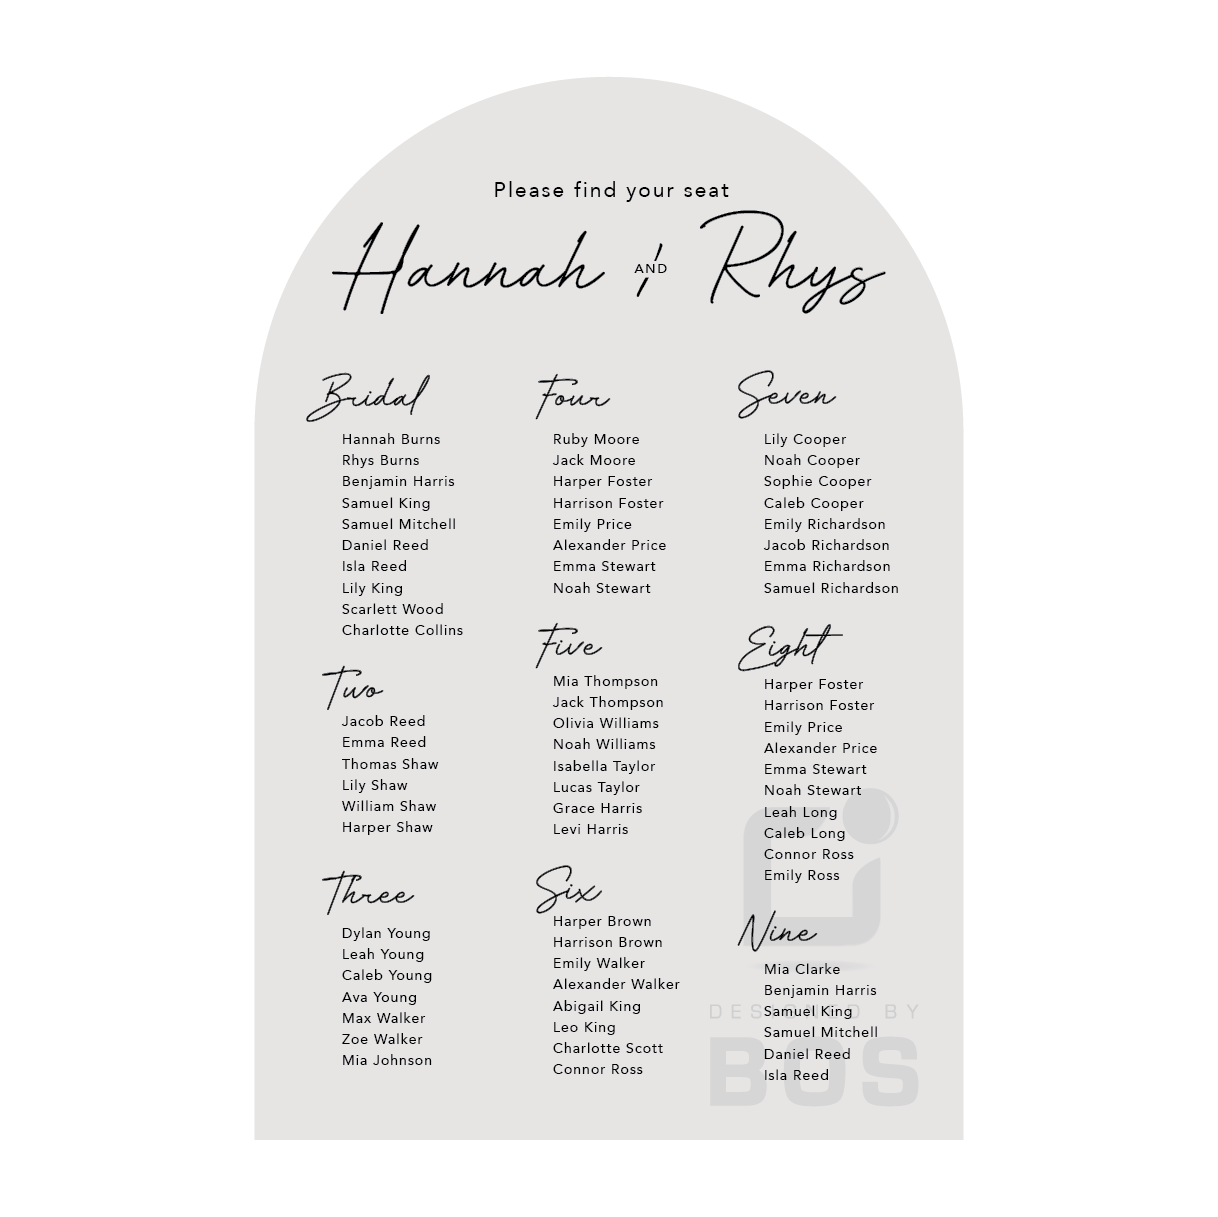 Please find your seat
Hannah AND Rhys
Bridal
Hannah Burns
Rhys Burns
Benjamin Harris
Samuel King
Samuel Mitchell
Daniel Reed
Isla Reed
Lily King
Scarlett Wood
Charlotte Collins
Two
Jacob Reed
Emma Reed
Thomas Shaw
Lily Shaw
William Shaw
Harper Shaw
Three
Dylan Young
Leah Young
Caleb Young
Ava Young
Max Walker
Zoe Walker
Mia Johnson
Four
Ruby Moore
Jack Moore
Harper Foster
Harrison Foster
Emily Price
Alexander Price
Emma Stewart
Noah Stewart
Five
Mia Thompson
Jack Thompson
Olivia Williams
Noah Williams
Isabella Taylor
Lucas Taylor
Grace Harris
Levi Harris
Six
Harper Brown
Harrison Brown
Emily Walker
Alexander Walker
Abigail King
Leo King
Charlotte Scott
Connor Ross
Seven
Lily Cooper
Noah Cooper
Sophie Cooper
Caleb Cooper
Emily Richardson
Jacob Richardson
Emma Richardson
Samuel Richardson
Eight
Harper Foster
Harrison Foster
Emily Price
Alexander Price
Emma Stewart
Noah Stewart
Leah Long
Caleb Long
Connor Ross
Emily Ross
Nine
Mia Clarke
Benjamin Harris
Samuel King
Samuel Mitchell
Daniel Reed
Isla Reed
DESIGNED BY
BOS